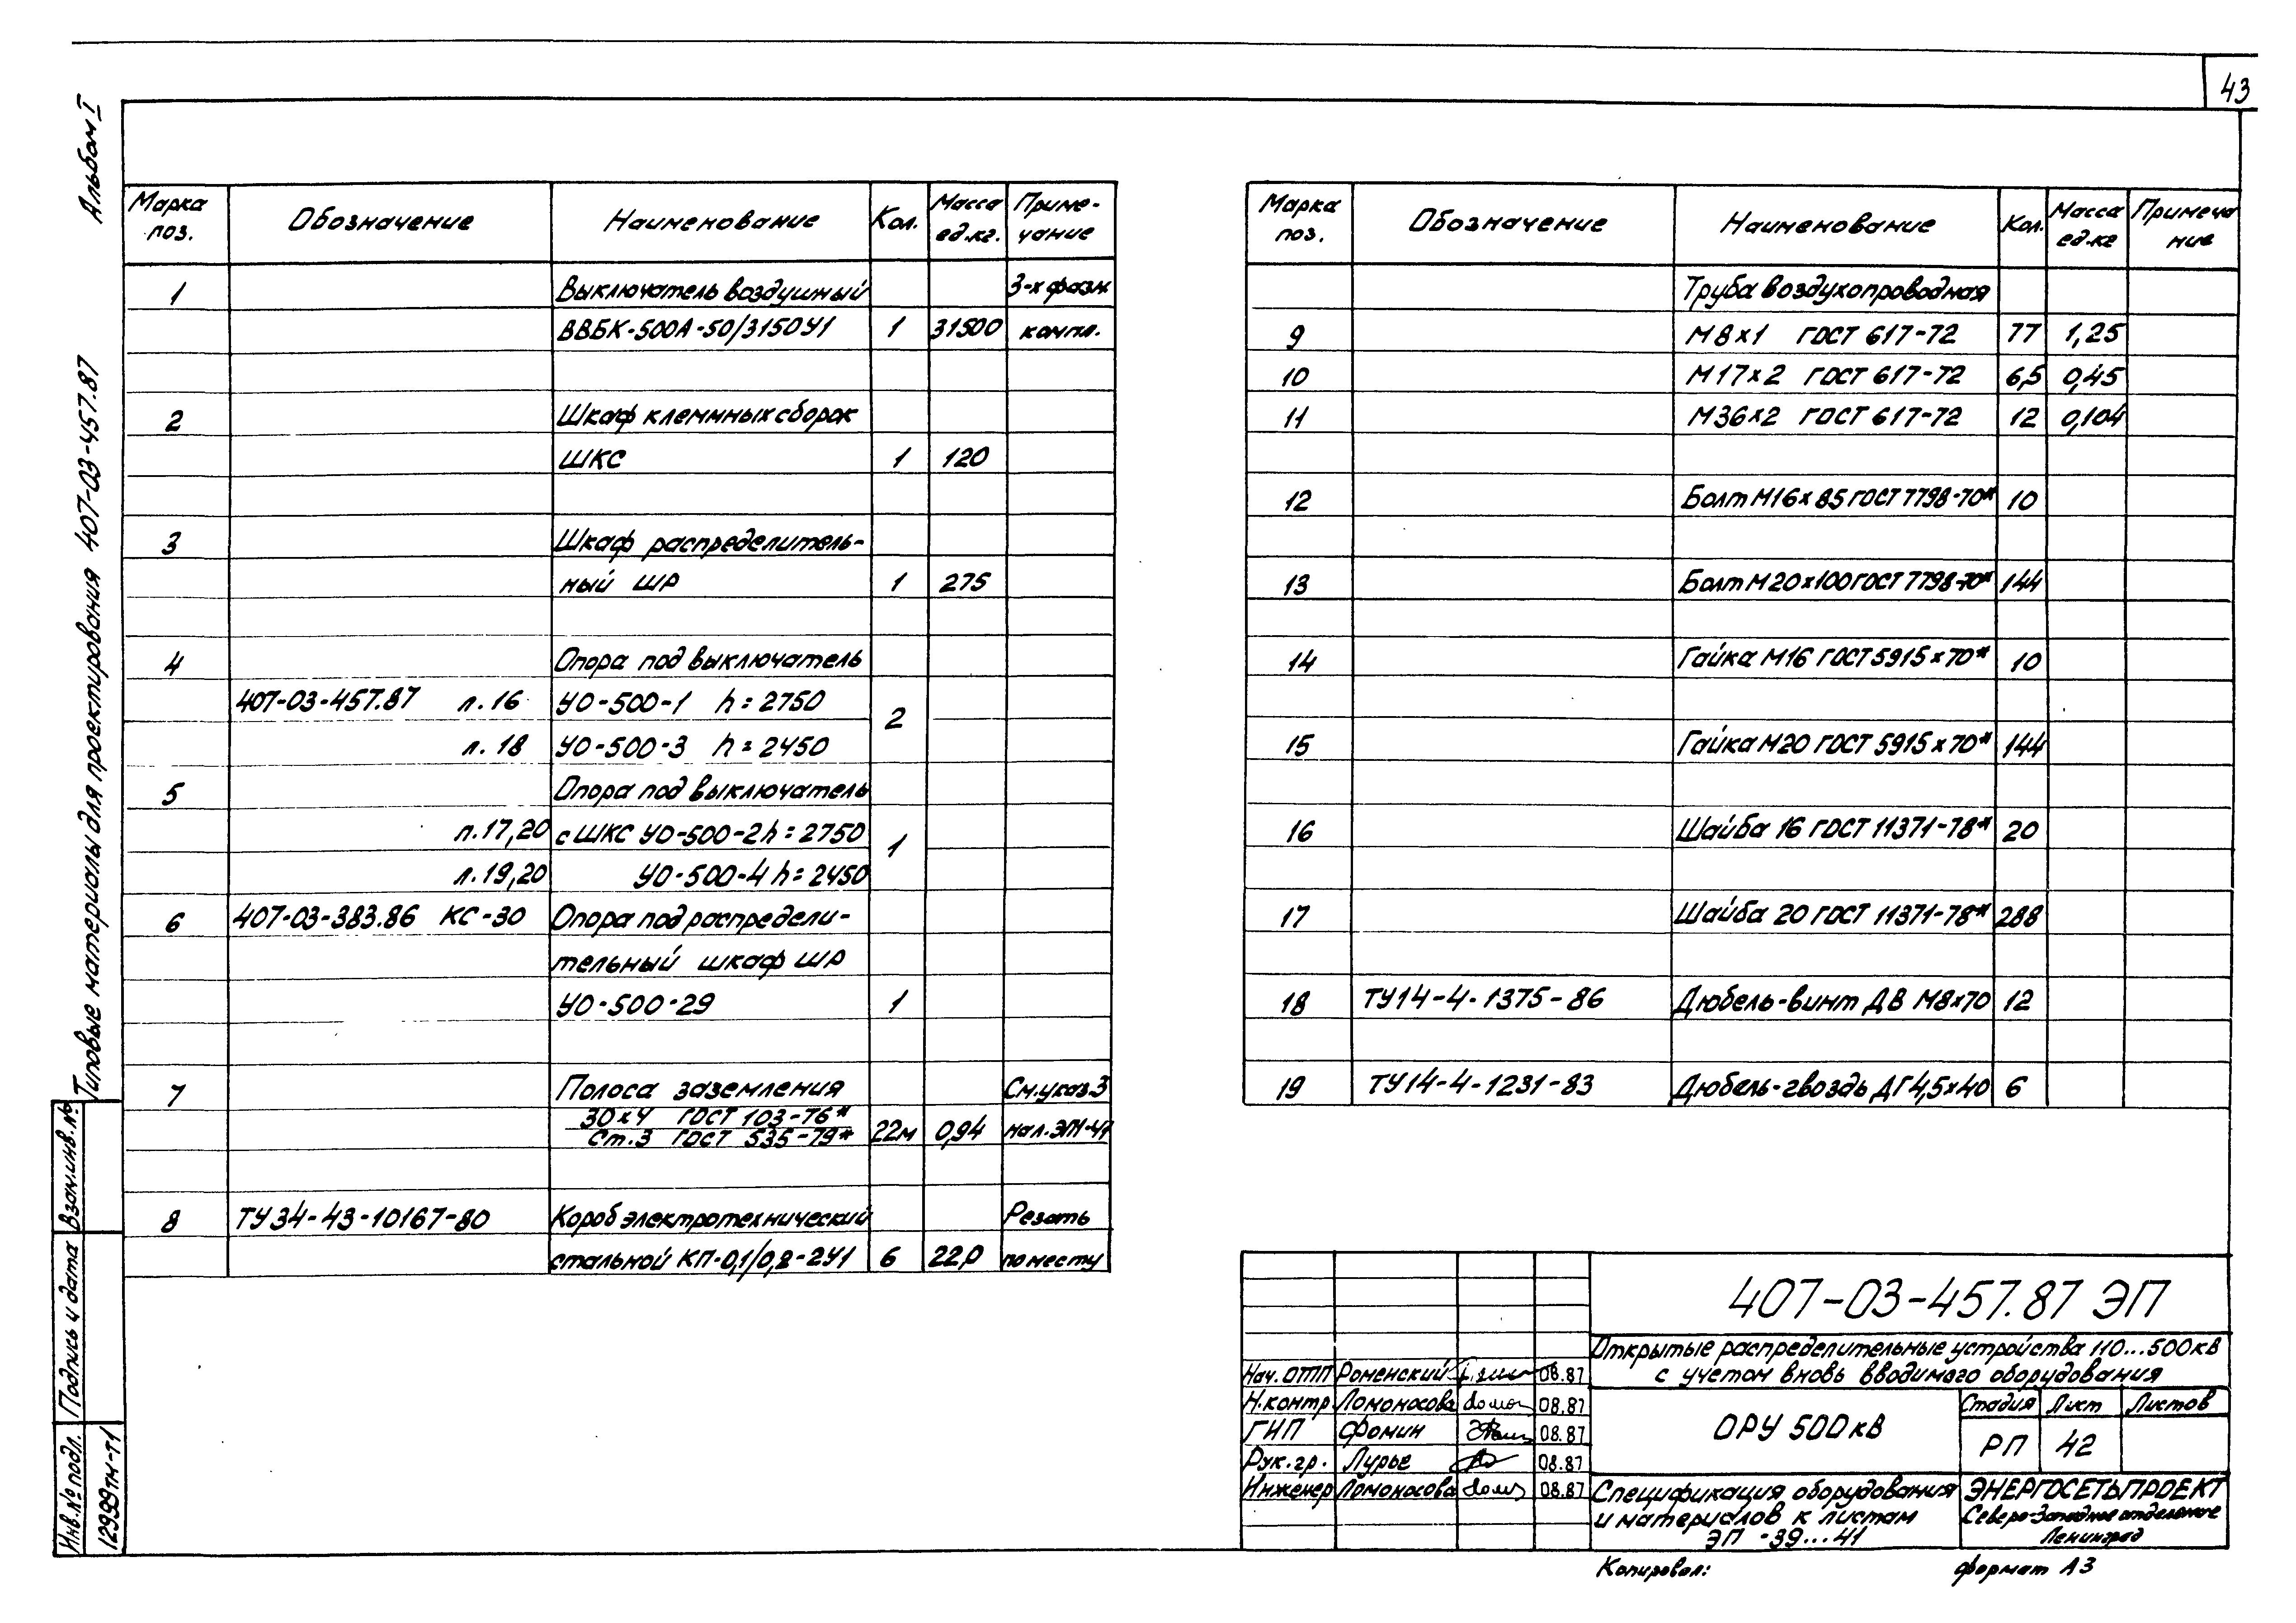 43
Альбом I
Типовые материалы для проектирования 407-03-457.87
Марка поз. Обозначение Наименование Кол. Масса ед.кг. Приме-чание
1 Выключатель воздушный 3-х фазн
ВВБК-500А-50/3150У1 1 31500 компл.
2 Шкаф клеммных сборок
ШКС 1 120
3 Шкаф распределитель-
ный ШР 1 275
4 Опора под выключатель
407-03-457.87 л.16 УО-500-1 h=2750
2
л.18 УО-500-3 h=2450
5 Опора под выключатель
л.17,20 с ШКС УО-500-2 h=2750
1
л.19,20 УО-500-4 h=2450
6 407-03-383.86 КС-30 Опора под распредели-
тельный шкаф ШР
УО-500-29 1
7 Полоса заземления См.указ.3
30х4 ГОСТ 103-76*
Ст.3 ГОСТ 535-79* 22м 0,94 на л.ЭП-41
8 ТУ34-43-10167-80 Короб электротехнический Резать
стальной КП-0,1/0,2-2У1 6 22,0 по месту
Марка поз. Обозначение Наименование Кол. Масса ед.кг Примеча ние
Труба воздухопроводная
9 М8х1 ГОСТ 617-72 77 1,25
10 М17х2 ГОСТ 617-72 6,5 0,45
11 М36х2 ГОСТ 617-72 12 0,104
12 Болт М16х85 ГОСТ 7798-70* 10
13 Болт М20х100 ГОСТ 7798-70* 144
14 Гайка М16 ГОСТ 5915х70* 10
15 Гайка М20 ГОСТ 5915х70* 144
16 Шайба 16 ГОСТ 11371-78* 20
17 Шайба 20 ГОСТ 11371-78* 288
18 ТУ14-4-1375-86 Дюбель-винт ДВ М8х70 12
19 ТУ14-4-1231-83 Дюбель-гвоздь ДГ4,5х40 6
407-03-457.87 ЭП
Открытые распределительные устройства 110...500кВ
с учетом вновь вводимого оборудования
Нач.ОТП Роменский 08.87
Н.контр. Ломоносова 08.87
ГИП Фомин 08.87
Рук.гр. Лурье 08.87
Инженер Ломоносова 08.87
ОРУ 500кВ
Стадия Лист Листов
РП 42
Спецификация оборудования
и материалов к листам
ЭП -39...41
ЭНЕРГОСЕТЬПРОЕКТ
Северо-Западное отделение
Ленинград
Копировал: формат А3
Взам.инв.№
Подпись и дата
Инв.№ подл.
12999тм-т1